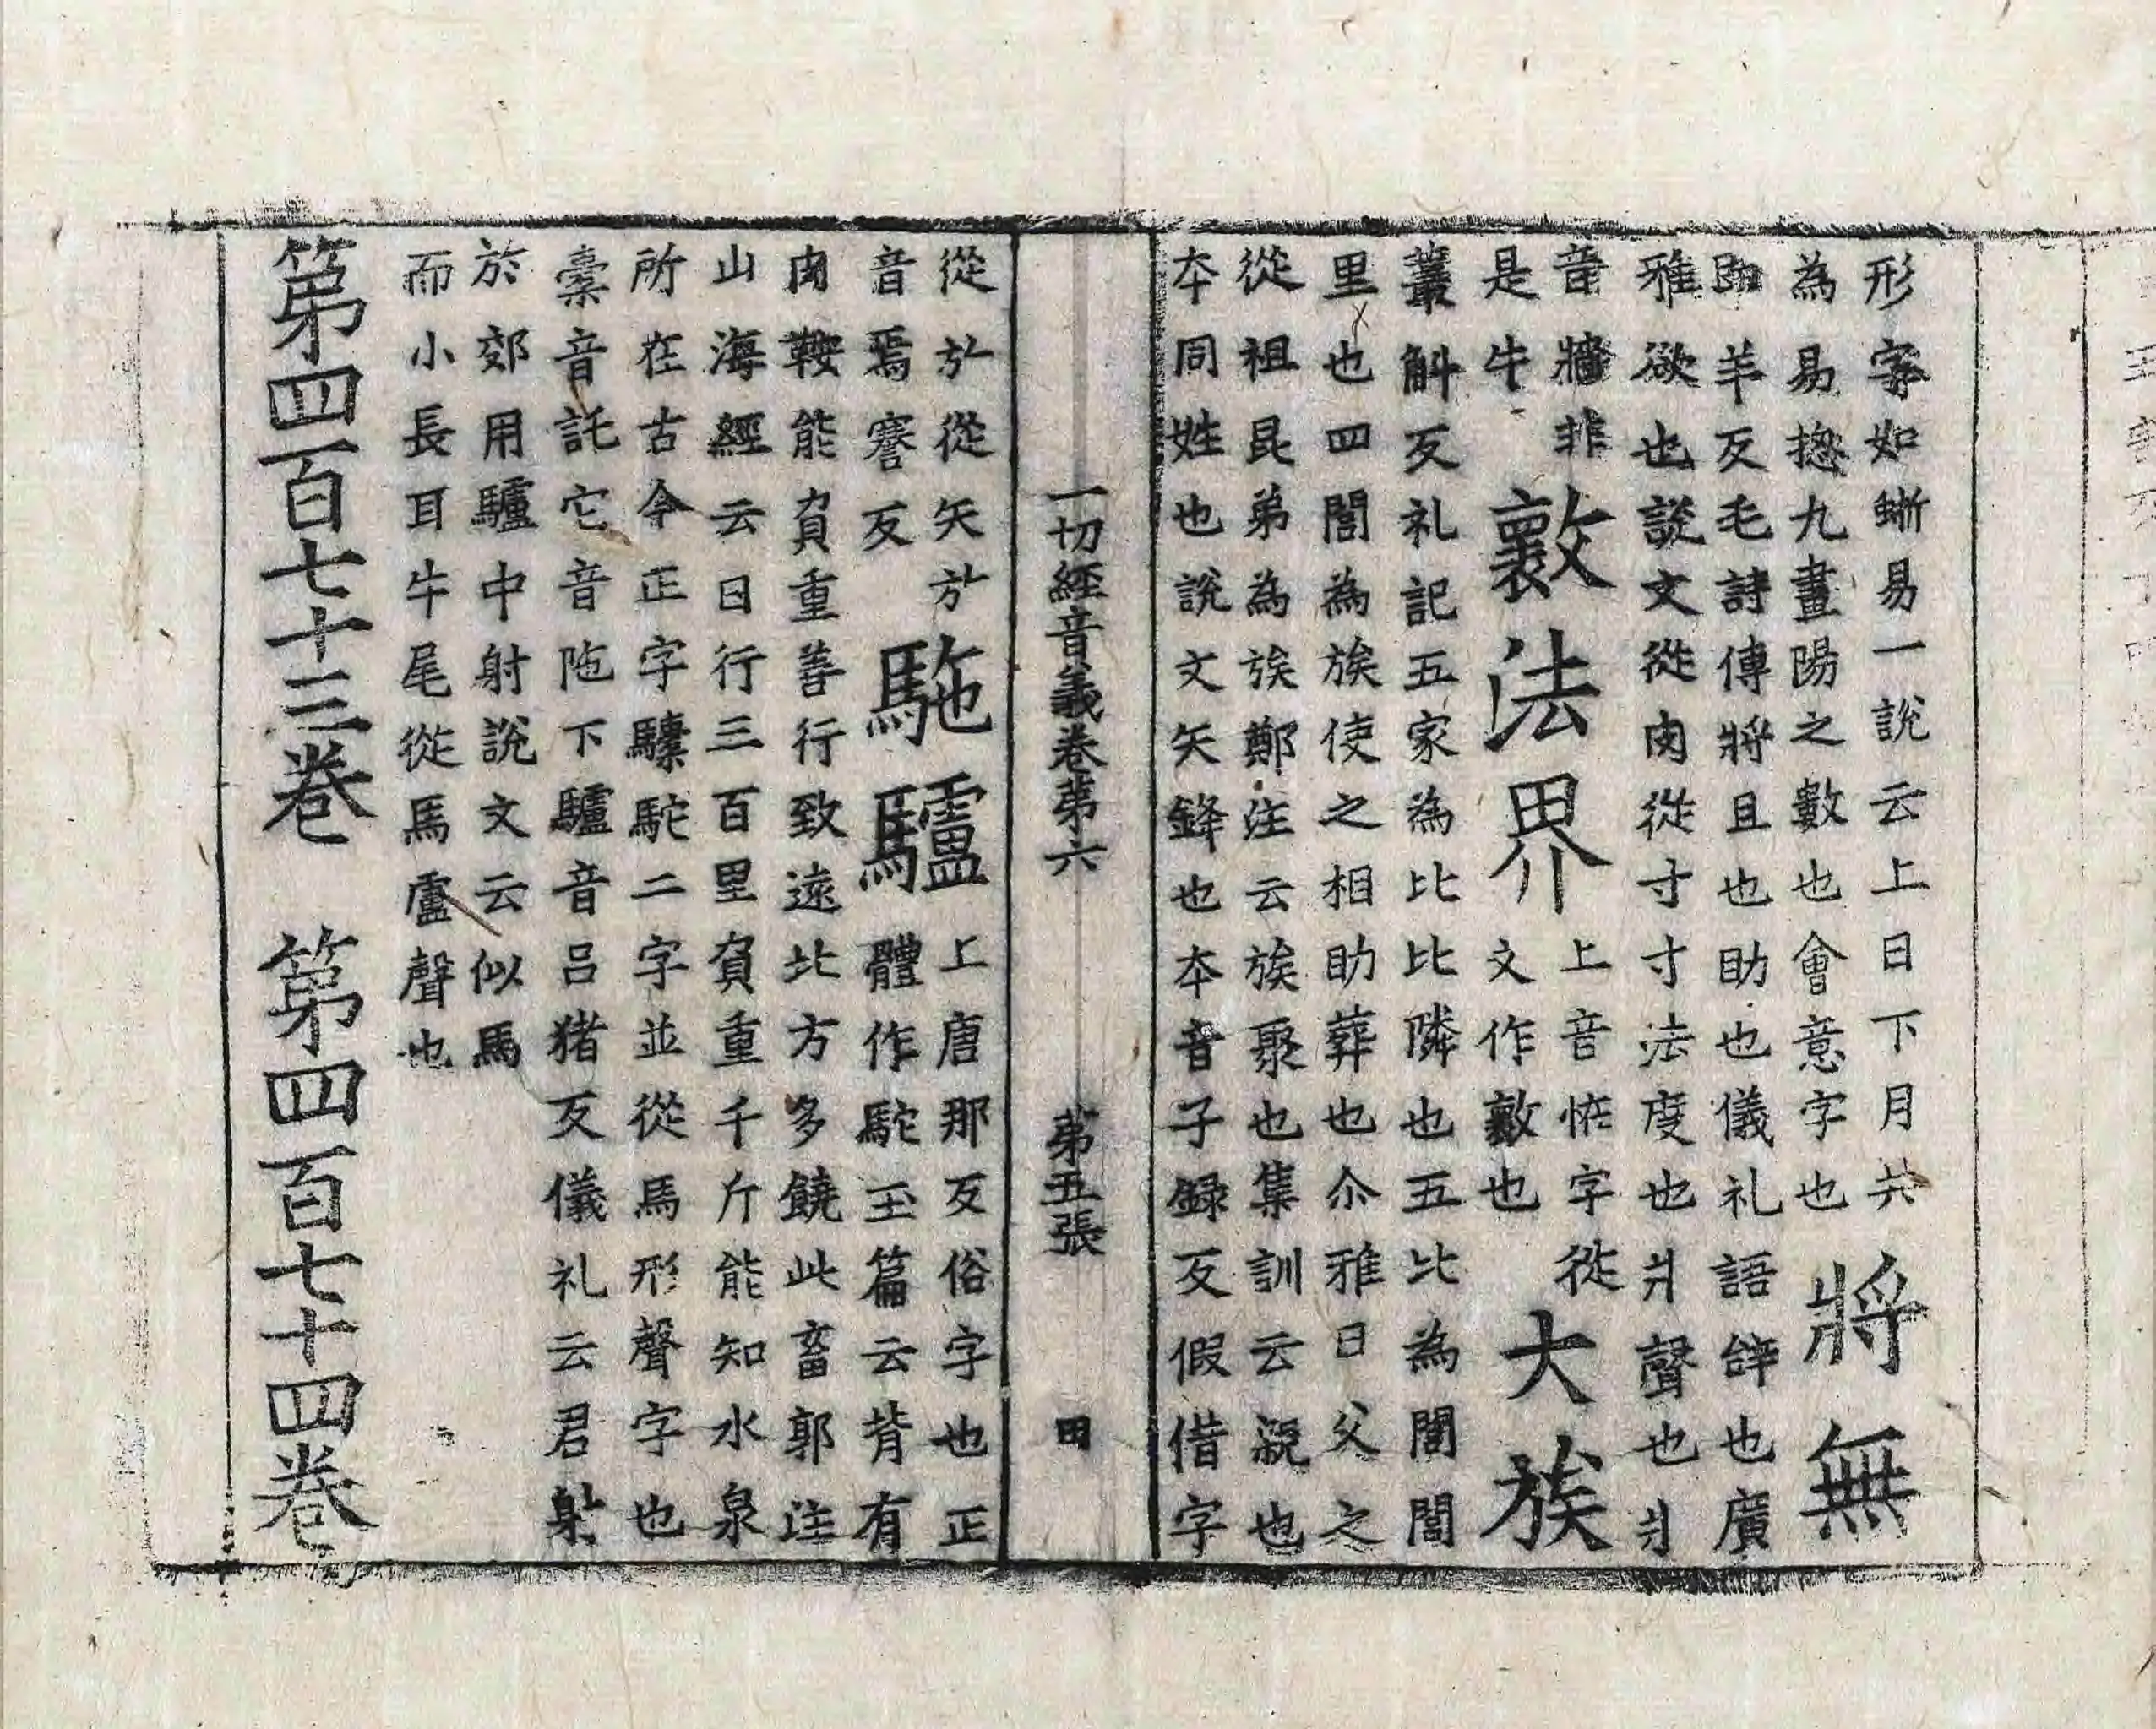 形字如蜥易一說云上日下月共
為易揔九畫陽之數也會意字也將無
即羊反毛詩傳將且也助也儀礼語辝也廣
雅欲也說文從肉從寸寸法度也爿聲也爿
音牆非
是牛
壞法界
上音恠字從
文作敳也
大族
叢斛反礼記五家為比比隣也五比為閭閭
里也四閭為族使之相助葬也尒雅曰父之
從祖昆弟為族鄭注云族聚也集訓云親也
夲同姓也說文矢鋒也夲音子録反假借字
一切經音義卷第六 第五張 田
從㫃從矢㫃
音焉謇反
駞驢
上唐那反俗字也正
體作駝玉篇云背有
肉鞍能負重善行致遠北方多饒此畜郭注
山海經云日行三百里負重千斤能知水泉
所在古今正字驝駝二字並從馬形聲字也
橐音託它音陁下驢音吕猪反儀礼云君射
於郊用驢中射說文云似馬
而小長耳牛尾從馬盧聲也
第四百七十三卷 第四百七十四卷